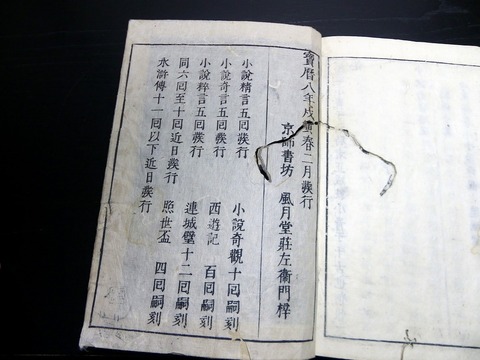 寶曆八年戊寅春二月發行
京師書坊 風月堂莊左衛門梓
小說精言五囘發行 小說奇觀十囘嗣刻
小說奇言五囘發行 西遊記 百囘嗣刻
小說粹言五囘發行 連城璧十二囘嗣刻
同六囘至十囘近日發行 照世盃 四囘嗣刻
水滸傳十一囘以下近日發行